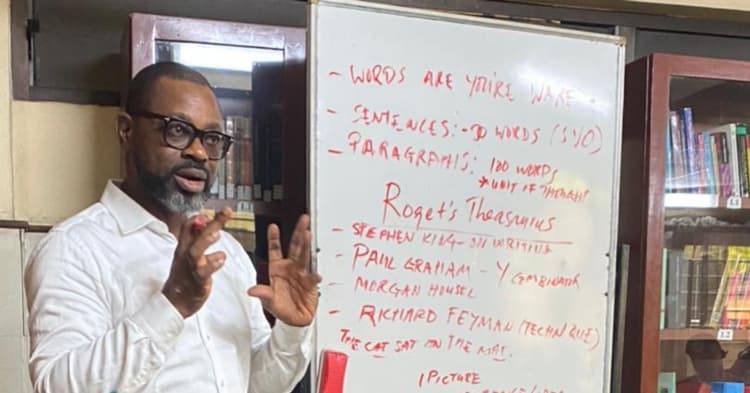 - WORDS ARE YOU'RE WARE
- SENTENCES: - WORDS (SVO)
- PARAGRAPHS: 100 WORDS
*UNIT OF THOUGHT
Roget's Thesaurus
- STEPHEN KING - ON WRITING
- PAUL GRAHAM - Y COMBINATOR
- MORGAN HOUSEL
- RICHARD FEYMAN (TECHNIQUE)
THE CAT SAT ON THE MAT.
1 PICTURE